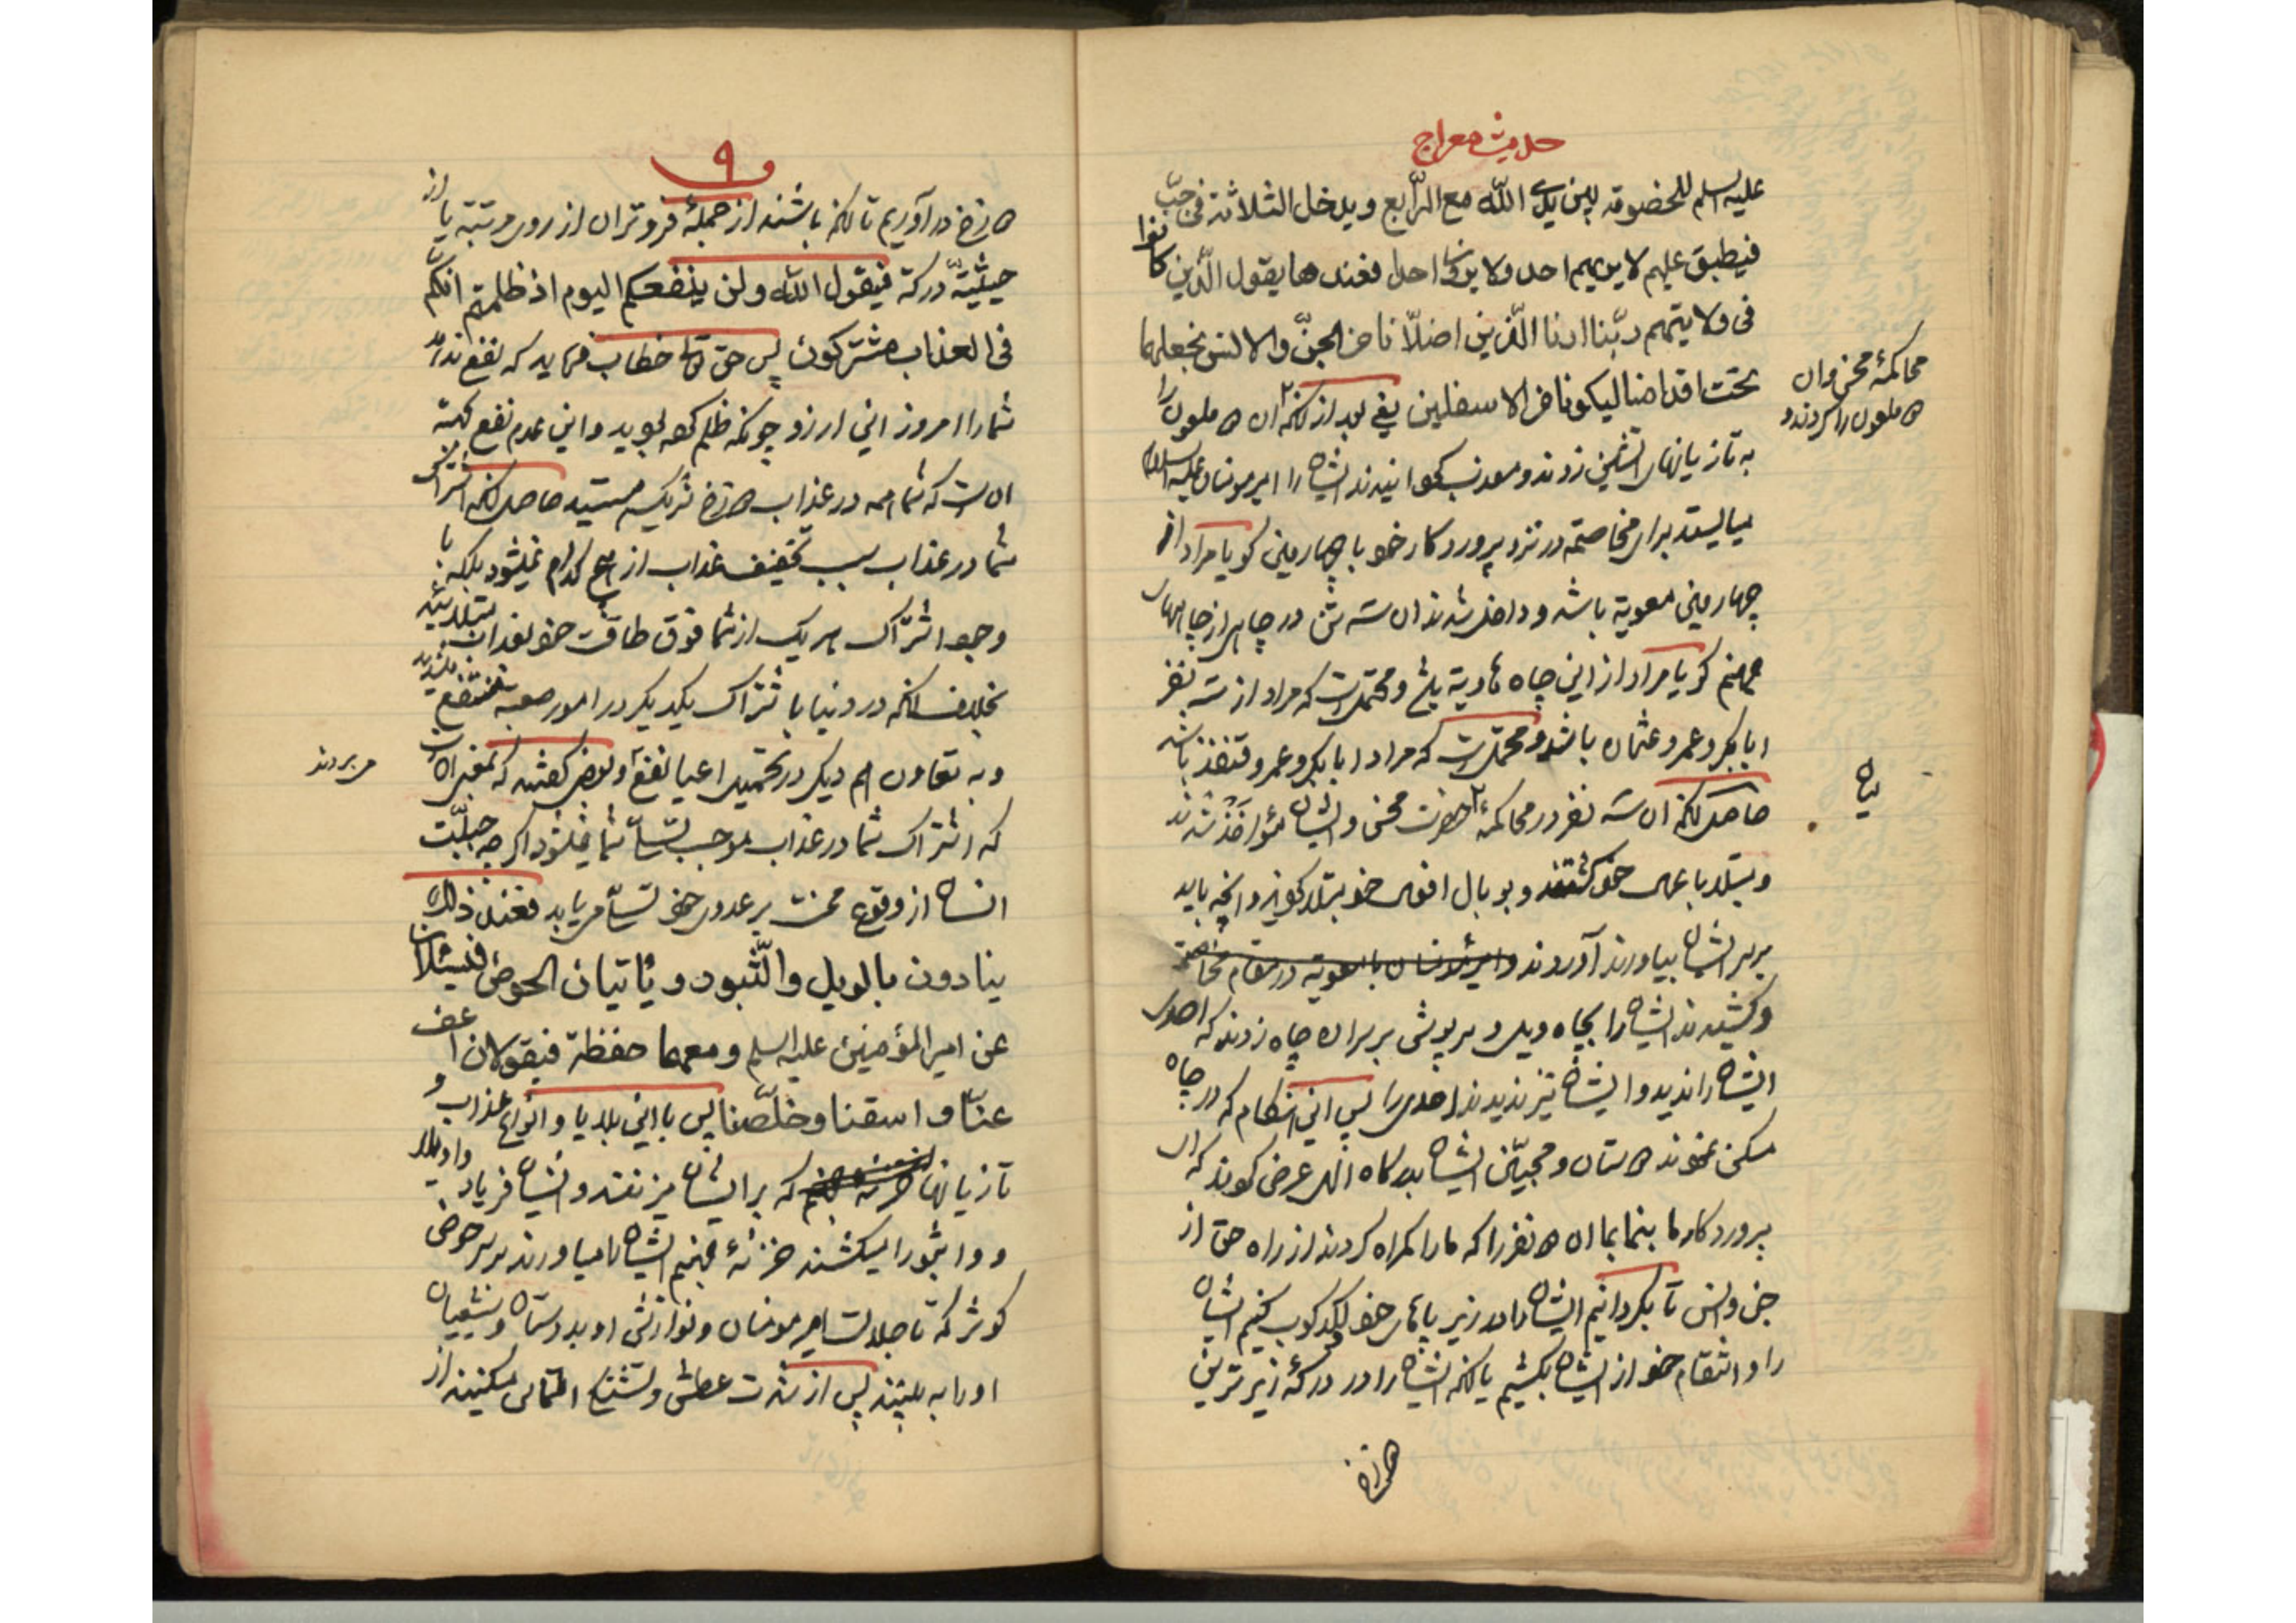 حدیث معراج
علیه السلم للخضومة بین یدی الله مع الرّابع و یدخل الثلاثة فی جبّ
فیطبق علیهم لا یریهم احد و لا یرون احدا فعندها یقول الّذین کانوا
فی ولایتهم ربّنا ارنا الّذین اضلّانا من الجنّ و الانس نجعلهما
تحت اقدامنا لیکونا من الاسفلین یعنی بعد از انکه ان دو ملعون را
محاکمهٔ محسن و ان
دو ملعون را کردند و
به تازیانهای اتشین زدند و معذب کردانیدند ایشان را امیر مومنان علیه السلام
میایستد برای مخاصمه در نزد پروردکار خود با چهارمین کویا مراد از
چهارمین معویة باشد و داخل شدند ان سه تن در چاهی از چاههای
جهنم کویا مراد از این چاه هاویة باشد و محتملست که مراد از سه نفر
ابابکر و عمر و عثمان باشد و محتملست که مراد ابابکر و عمر و قنفذ باشد
حاصل انکه ان سه نفر در محاکمهٔ حضرت محسن و ایشان مؤاخذ شدند
و مبتلا باعمال خود کشتند و بوبال افعال خود مبتلا کردند و انچه باید
بر سر ایشان بیاورند آوردند و امیر مومنان با معویة در مقام مخاصمه
و کشیدند ایشان را بچاه ویل و سرپوشی بر سر ان چاه زدند که احدی
ایشان را ندید و ایشان نیز ندیدند احدی را پس این هنکام که در چاه
مسکن نمودند دوستان و محبّین ایشان بدرکاه الهی عرض کردند که ای
پروردکار ما بنما بما ان دو نفر را که ما را کمراه کردند از راه حق از
جن و انس تا بکردانیم ایشان را در زیر پاهای خود لکدکوب کنیم ایشان
را و انتقام خود از ایشان بکشیم یا انکه ایشان را در درکهٔ زیر ترین
دوزخ
۹
دوزخ در آوریم تا انکه باشند از جملهٔ فروتران از روی مرتبة یا از
حیثیّة درکة فیقول الله و لن ینفعکم الیوم اذ ظلمتم انکم
فی العذاب مشترکون پس حق تعالی خطاب فرماید که نفع ندارد
شما را امروز این ارزو چونکه ظلم کرده بودید و این عدم نفع بجهة
ان است که شما همه در عذاب دوزخ شریک هستید حاصل انکه اشتراک
شما در عذاب سبب تخفیف عذاب از هیچ کدام نمیشود بلکه با
وجود اشتراک هر یک از شما فوق طاقت خود بعذاب مبتلائید
بخلاف انکه در دنیا باشتراک یکدیکر در امور صعبه منتفع میشدید
و به تعاون هم دیکر در تحمیل اعبا نفع می بردند و بعض کفتند که معنی ان است
که اشتراک شما در عذاب موجب تسلّی شما نمیشود اکر چه جبلّت
انسان از وقوع محنت بر عدوی خود تسلّی می یابد فعند ذلک
ینادون بالویل و الثّبور و یاتیان الحوض فیسئلان
عن امیر المؤمنین علیه السلم و معهما حفظة فیقولان اعف
عنّا و اسقنا و خلّصنا پس با این بلایا و انواع عذاب و
تازیانها که بر ایشان میزنند و ایشان فریاد واویلا
و وا ثبورا میکشند خزنهٔ جهنم ایشان را میاورند بر سر حوض
کوثر که تا جلالت امیر مومنان و نوازش او بدوستان و شیعیان
او را به بینند پس از شدت عطش و تشنکی التماس میکنند از